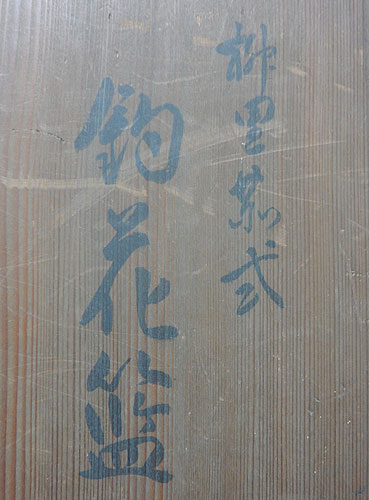 柳里恭式
釣花籃